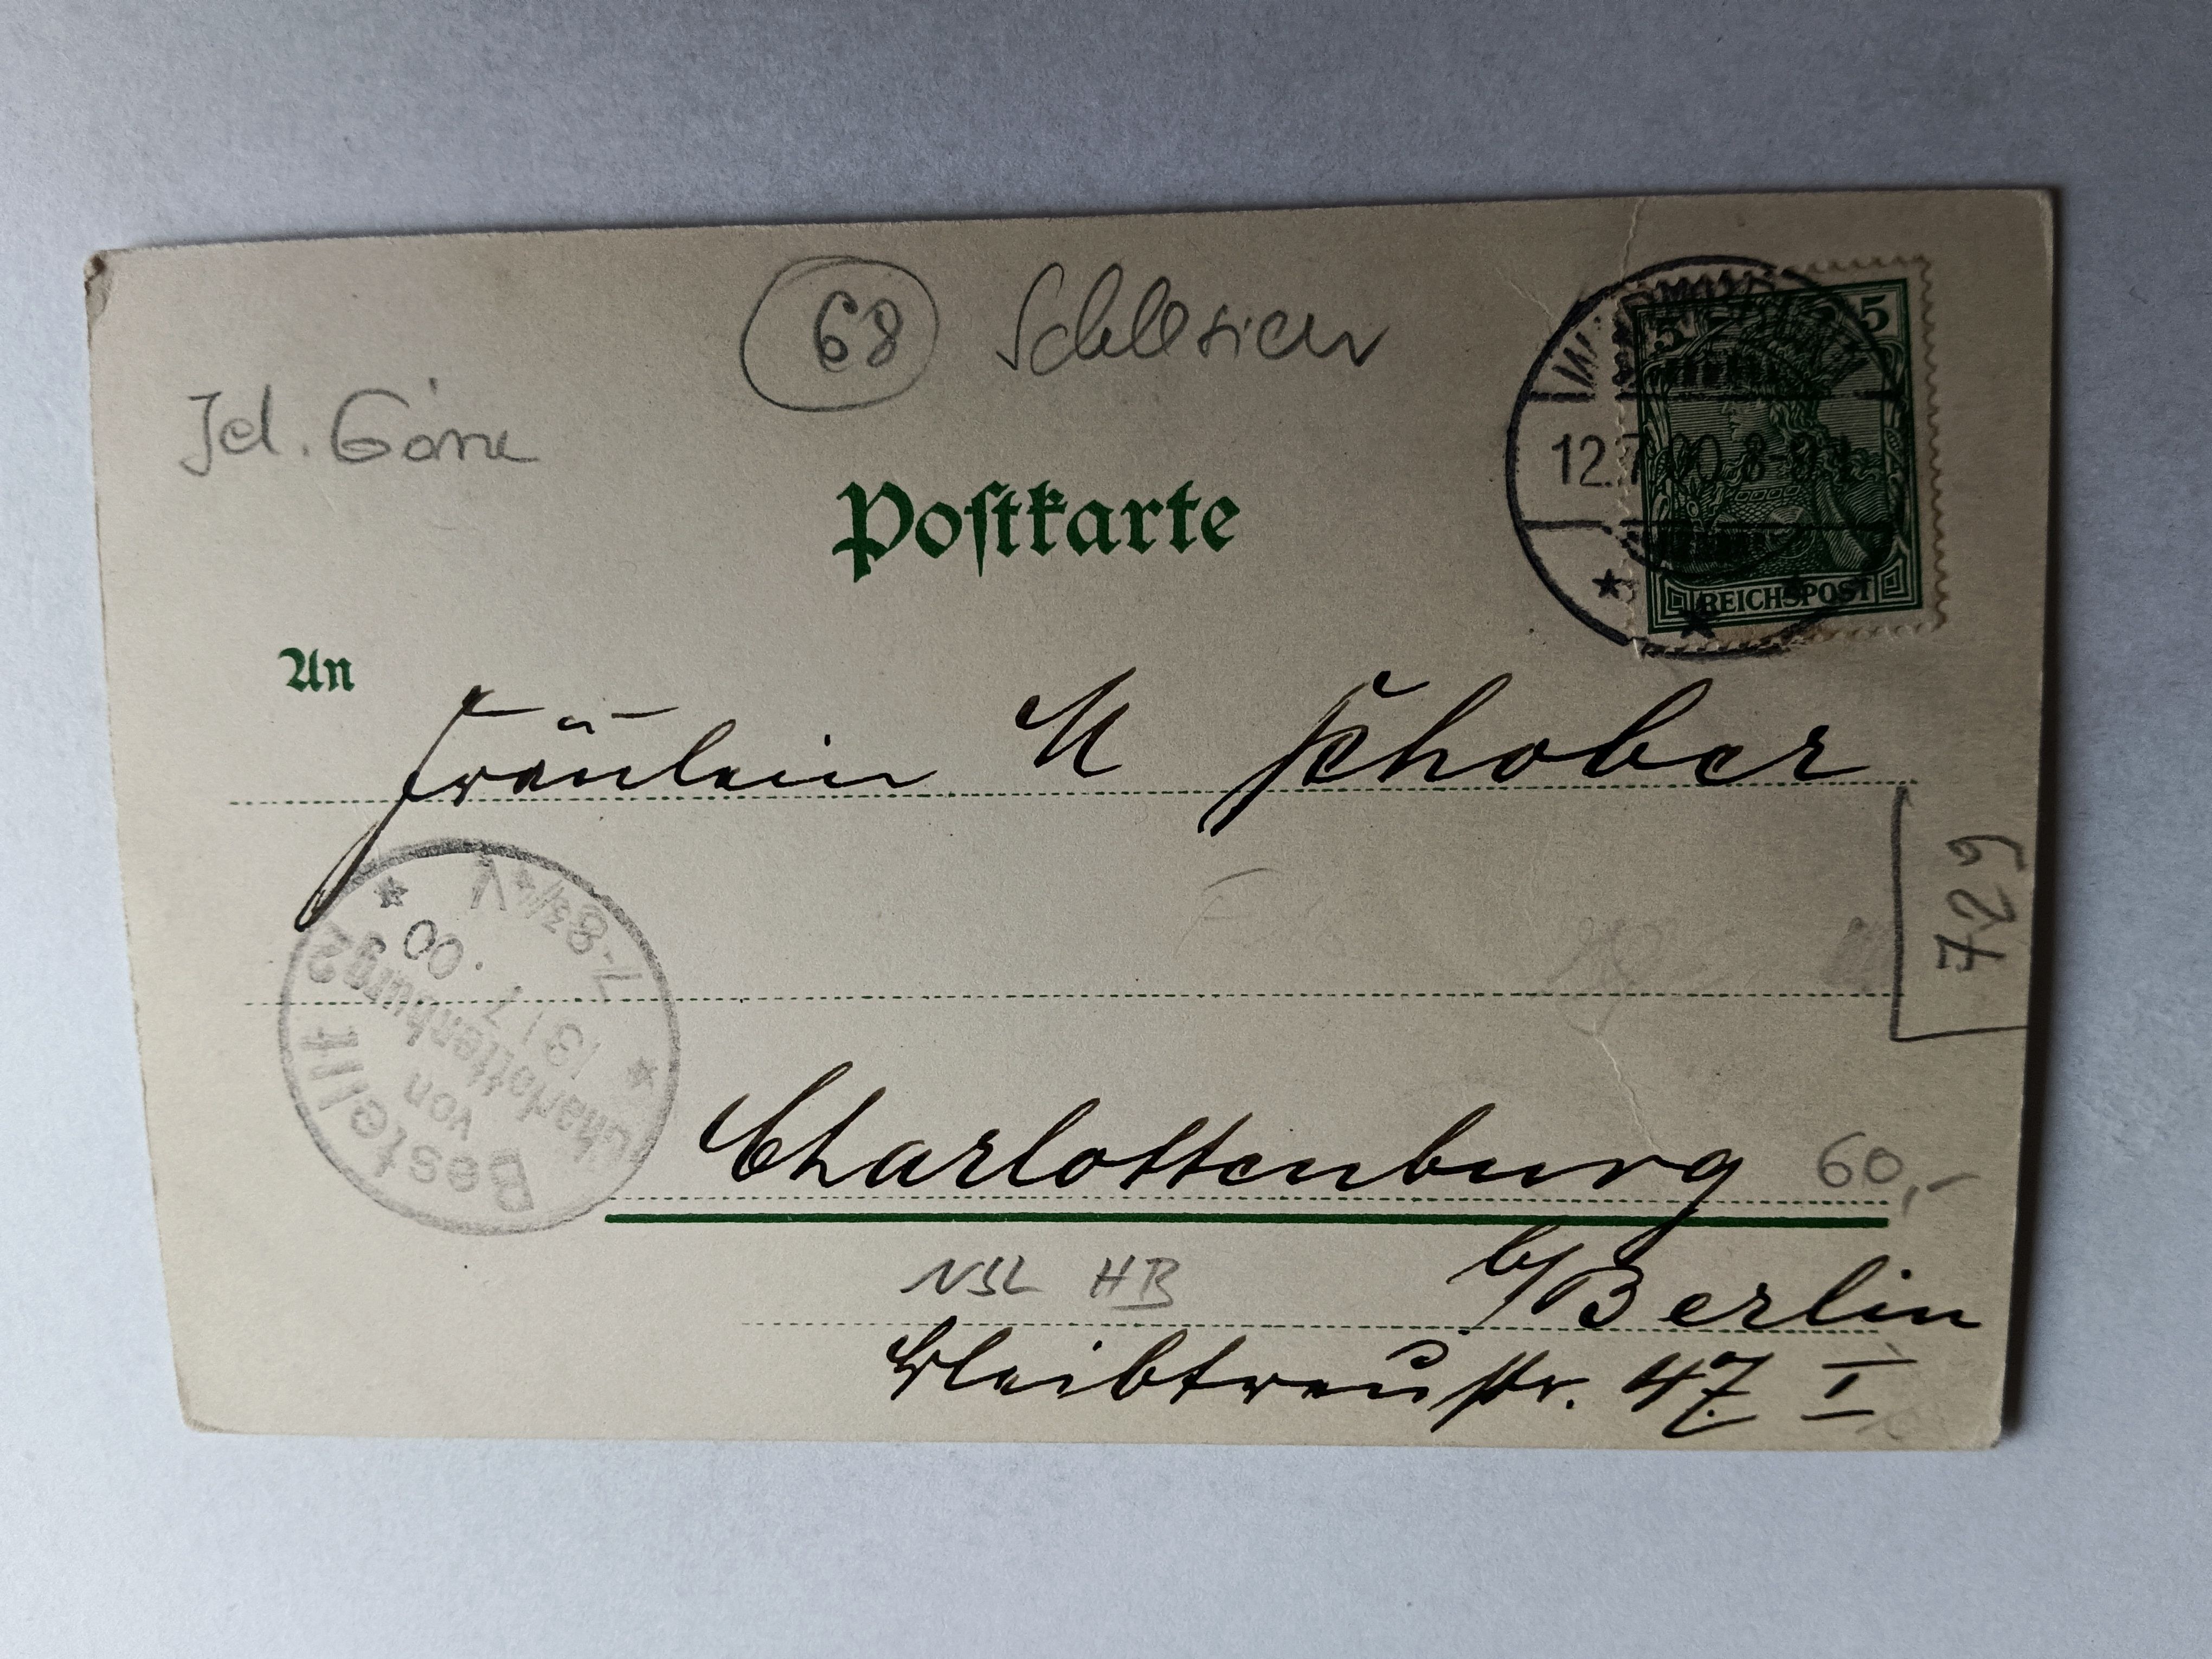 68 Schlesien
Jel. Górne
Postkarte
5 5
12.7.00.8-9
REICHSPOST
An
Fräulein M Schober
729
Bestellt
von
Charlottenburg 2
13/7 .00
7-8¾V
Charlottenburg
60,-
b/Berlin
NSL HB
Bleibtreustr. 47 I